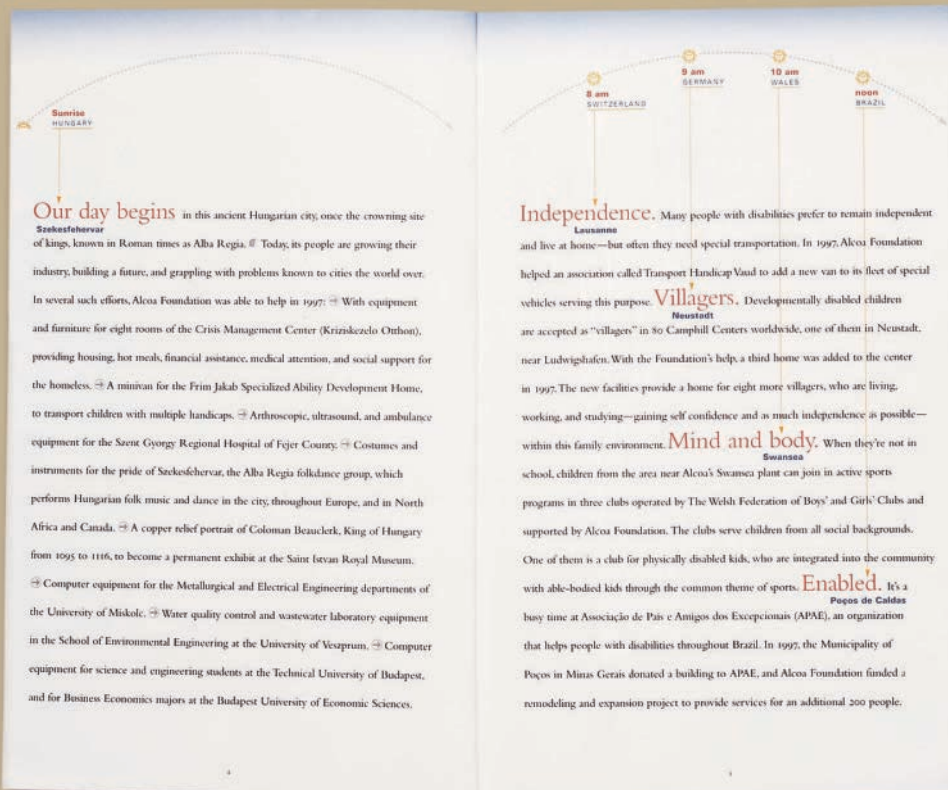 Sunrise
HUNGARY
Our day begins in this ancient Hungarian city, once the crowning site
Szekesfehervar
of kings, known in Roman times as Alba Regia. Today, its people are growing their
industry, building a future, and grappling with problems known to cities the world over.
In several such efforts, Alcoa Foundation was able to help in 1997: → With equipment
and furniture for eight rooms of the Crisis Management Center (Kriziskezelo Otthon),
providing housing, hot meals, financial assistance, medical attention, and social support for
the homeless. → A minivan for the Frim Jakab Specialized Ability Development Home,
to transport children with multiple handicaps. → Arthroscopic, ultrasound, and ambulance
equipment for the Szent Gyorgy Regional Hospital of Fejer County. → Costumes and
instruments for the pride of Szekesfehervar, the Alba Regia folkdance group, which
performs Hungarian folk music and dance in the city, throughout Europe, and in North
Africa and Canada. → A copper relief portrait of Coloman Beauclerk, King of Hungary
from 1095 to 1116, to become a permanent exhibit at the Saint Istvan Royal Museum.
→ Computer equipment for the Metallurgical and Electrical Engineering departments of
the University of Miskolc. → Water quality control and wastewater laboratory equipment
in the School of Environmental Engineering at the University of Veszprum. → Computer
equipment for science and engineering students at the Technical University of Budapest,
and for Business Economics majors at the Budapest University of Economic Sciences.
8 am
SWITZERLAND
9 am
GERMANY
10 am
WALES
noon
BRAZIL
Independence. Many people with disabilities prefer to remain independent
Lausanne
and live at home—but often they need special transportation. In 1997, Alcoa Foundation
helped an association called Transport Handicap Vaud to add a new van to its fleet of special
vehicles serving this purpose. Villagers. Developmentally disabled children
Neustadt
are accepted as "villagers" in 80 Camphill Centers worldwide, one of them in Neustadt,
near Ludwigshafen. With the Foundation's help, a third home was added to the center
in 1997. The new facilities provide a home for eight more villagers, who are living,
working, and studying—gaining self confidence and as much independence as possible—
within this family environment. Mind and body. When they're not in
Swansea
school, children from the area near Alcoa's Swansea plant can join in active sports
programs in three clubs operated by The Welsh Federation of Boys' and Girls' Clubs and
supported by Alcoa Foundation. The clubs serve children from all social backgrounds.
One of them is a club for physically disabled kids, who are integrated into the community
with able-bodied kids through the common theme of sports. Enabled. It's a
Poços de Caldas
busy time at Associação de Pais e Amigos dos Excepcionais (APAE), an organization
that helps people with disabilities throughout Brazil. In 1997, the Municipality of
Poços in Minas Gerais donated a building to APAE, and Alcoa Foundation funded a
remodeling and expansion project to provide services for an additional 200 people.